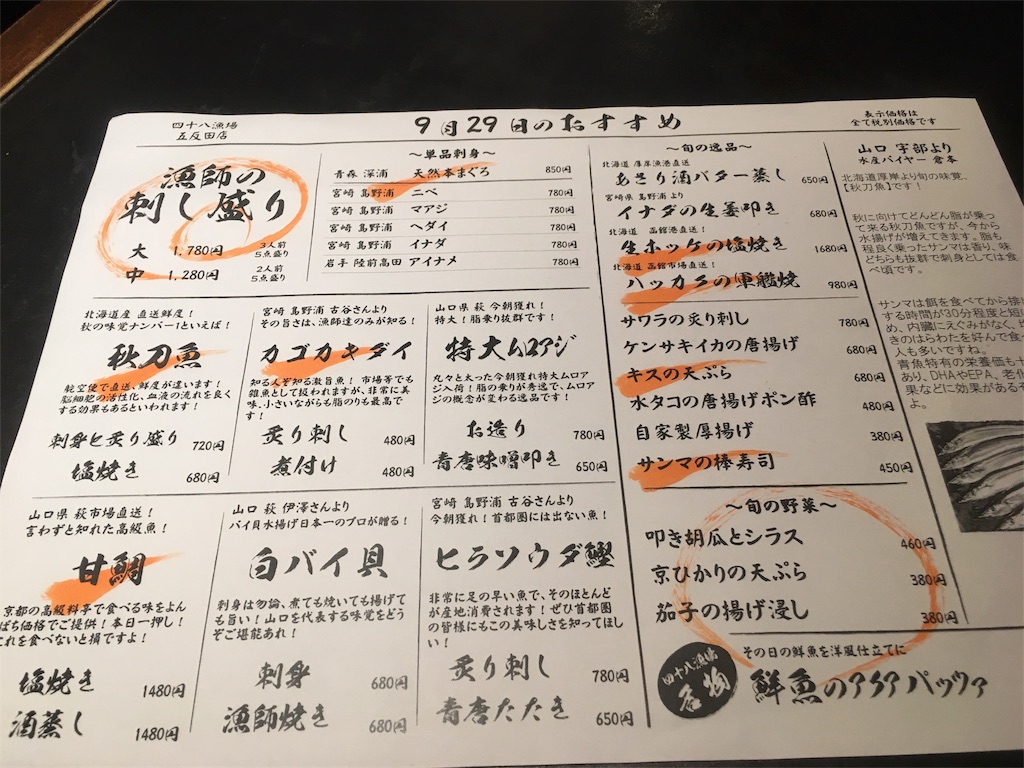 四十八漁場
五反田店
9月29日のおすすめ
表示価格は
全て税別価格です
漁師の
刺し盛り
大 1.780円 3人前
5点盛り
中 1.280円 2人前
5点盛り
〜単品刺身〜
青森 深浦 天然本まぐろ 850円
宮崎 島野浦 ニベ 780円
宮崎 島野浦 マアジ 780円
宮崎 島野浦 ヘダイ 780円
宮崎 島野浦 イナダ 780円
岩手 陸前高田 アイナメ 780円
〜旬の逸品〜
北海道 厚岸漁港直送
あさり酒バター蒸し 650円
宮崎県 島野浦 より
イナダの生姜叩き 680円
北海道 函館港直送!
生ホッケの塩焼き 1680円
北海道 函館市場直送!
ハッカクの軍艦焼 980円
サワラの炙り刺し 780円
ケンサキイカの唐揚げ 680円
キスの天ぷら 680円
水タコの唐揚げポン酢 480円
自家製厚揚げ 380円
サンマの棒寿司 450円
〜旬の野菜〜
叩き胡瓜とシラス 460円
京ひかりの天ぷら 380円
茄子の揚げ浸し 380円
四十八漁場
名物
その日の鮮魚を洋風仕立てに
鮮魚のアクアパッツァ
山口 宇部より
水産バイヤー 倉本
北海道厚岸より旬の味覚、
【秋刀魚】です!
秋に向けてどんどん脂が乗っ
て来る秋刀魚ですが、今から
水揚げが増えてきます。脂も
程良く乗ったサンマは香り、味
どちらも抜群で刺身としては食
べ頃です。
サンマは餌を食べてから排
する時間が30分程度と短
め、内臓にえぐみがなく、
きのはらわたを好んで食
人も多いですね。
青魚特有の栄養価も十
あり、DHAやEPA、老化
果などに効果があるそ
よ。
北海道産 直送鮮度!
秋の味覚ナンバー1といえば!
秋刀魚
航空便で直送、鮮度が違います!
脳細胞の活性化、血液の流れを良く
する効果もあるといわれます!
刺身と炙り盛り 720円
塩焼き 680円
宮崎 島野浦 古谷さんより
その旨さは、漁師達のみが知る!
カゴカキダイ
知る人ぞ知る激旨魚! 市場等でも
雑魚として扱われますが、非常に美
味。小さいながらも脂のりも最高で
す!
炙り刺し 480円
煮付け 480円
山口県 萩 今朝獲れ!
特大!脂乗り抜群です!
特大ムロアジ
丸々と太った今朝獲れ特大ムロア
ジ入荷!脂の乗りが秀逸で、ムロア
ジの概念が変わる逸品です!
お造り 780円
青唐味噌叩き 650円
山口県 萩市場直送!
言わずと知れた高級魚!
甘鯛
京都の高級料亭で食べる味をよん
ぱち価格でご提供!本日一押し!
これを食べないと損ですよ!
塩焼き 1480円
酒蒸し 1480円
山口 萩 伊澤さんより
バイ貝水揚げ日本一のプロが贈る!
白バイ貝
刺身は勿論、煮ても焼いても揚げて
も旨い!山口を代表する味覚をどう
ぞご堪能あれ!
刺身 680円
漁師焼き 680円
宮崎 島野浦 古谷さんより
今朝獲れ!首都圏には出ない魚!
ヒラソウダ鰹
非常に足の早い魚で、そのほとんど
が産地消費されます!ぜひ首都圏
の皆様にもこの美味しさを知ってほし
い!
炙り刺し 780円
青唐たたき 650円